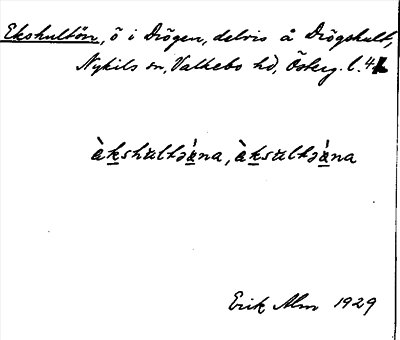 Ekshultön, ö i Drögen, delvis å Drögshult,
Nykils sn, Valkebo hd, Österg. l.
àkshultɜána, àksultɜána
Erik Alm 1929